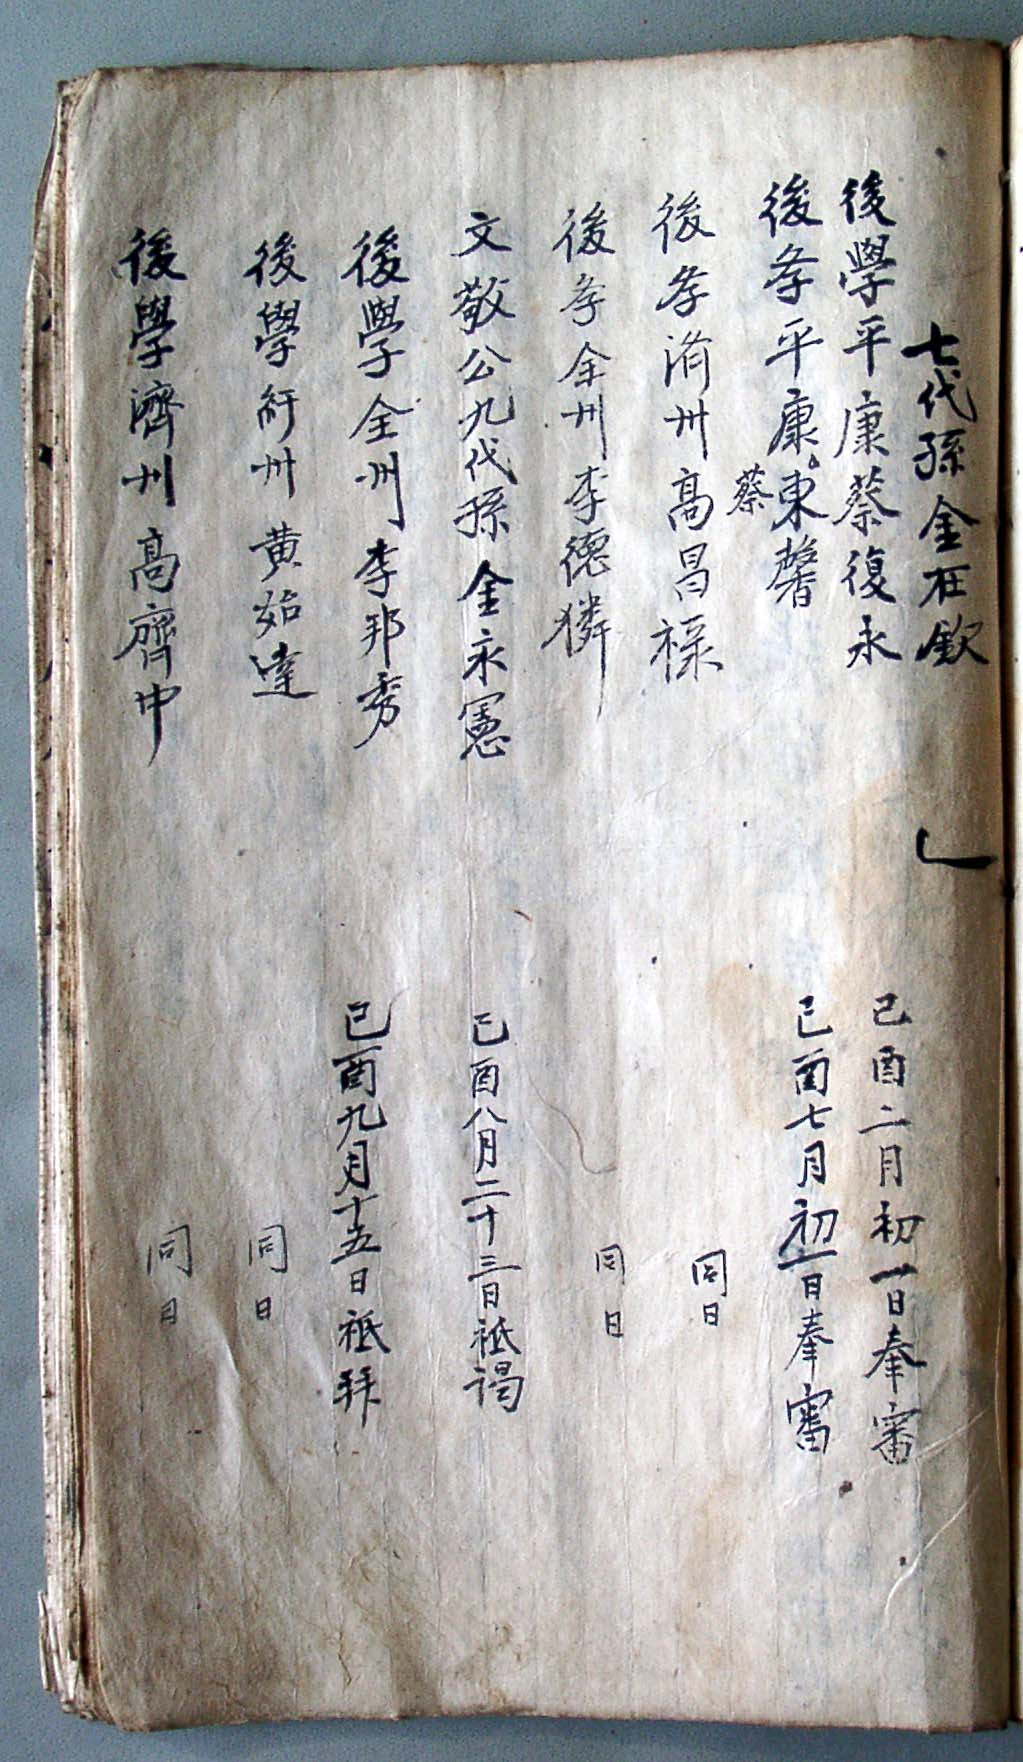 七代孫金在欽
後學平康蔡復永 己酉二月初一日奉審
後孝平康東馨 己酉七月初一日奉審
蔡
後孝済州高昌祿 同日
後孝全州李德獜 同日
文敬公九代孫金永憲 己酉八月二十三日祗謁
後學全州李邦秀 己酉九月十五日祗拜
後學紆州黃始達 同日
後學濟州高齊中 同日